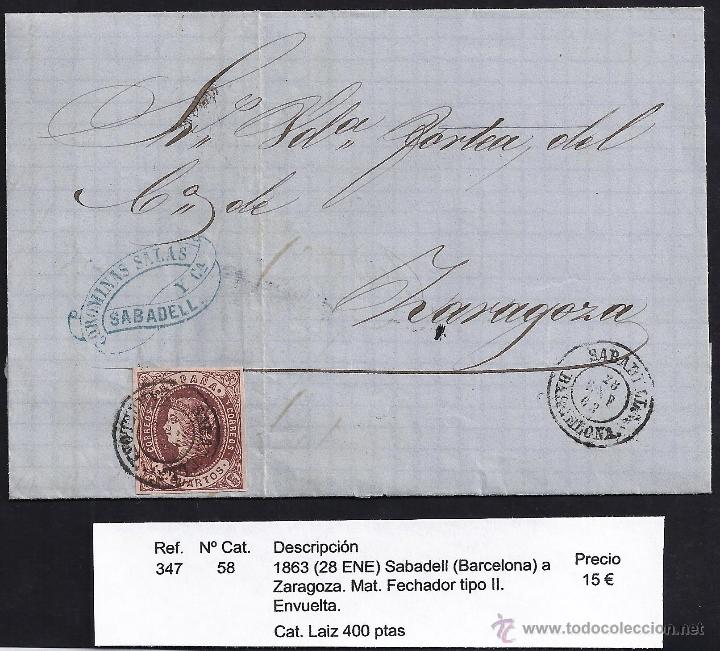 Sr. Vda. Portea, del
Co. de
Zaragoza
COROMINAS SALAS
Y CA.
SABADELL.
SABADELL
28
ENE
63
BARCELONA
ESPAÑA
CORREOS
CORREOS
4 CUARTOS
Ref. Nº Cat. Descripción Precio
347 58 1863 (28 ENE) Sabadell (Barcelona) a 15 €
Zaragoza. Mat. Fechador tipo II.
Envuelta.
Cat. Laiz 400 ptas
© www.todocoleccion.net